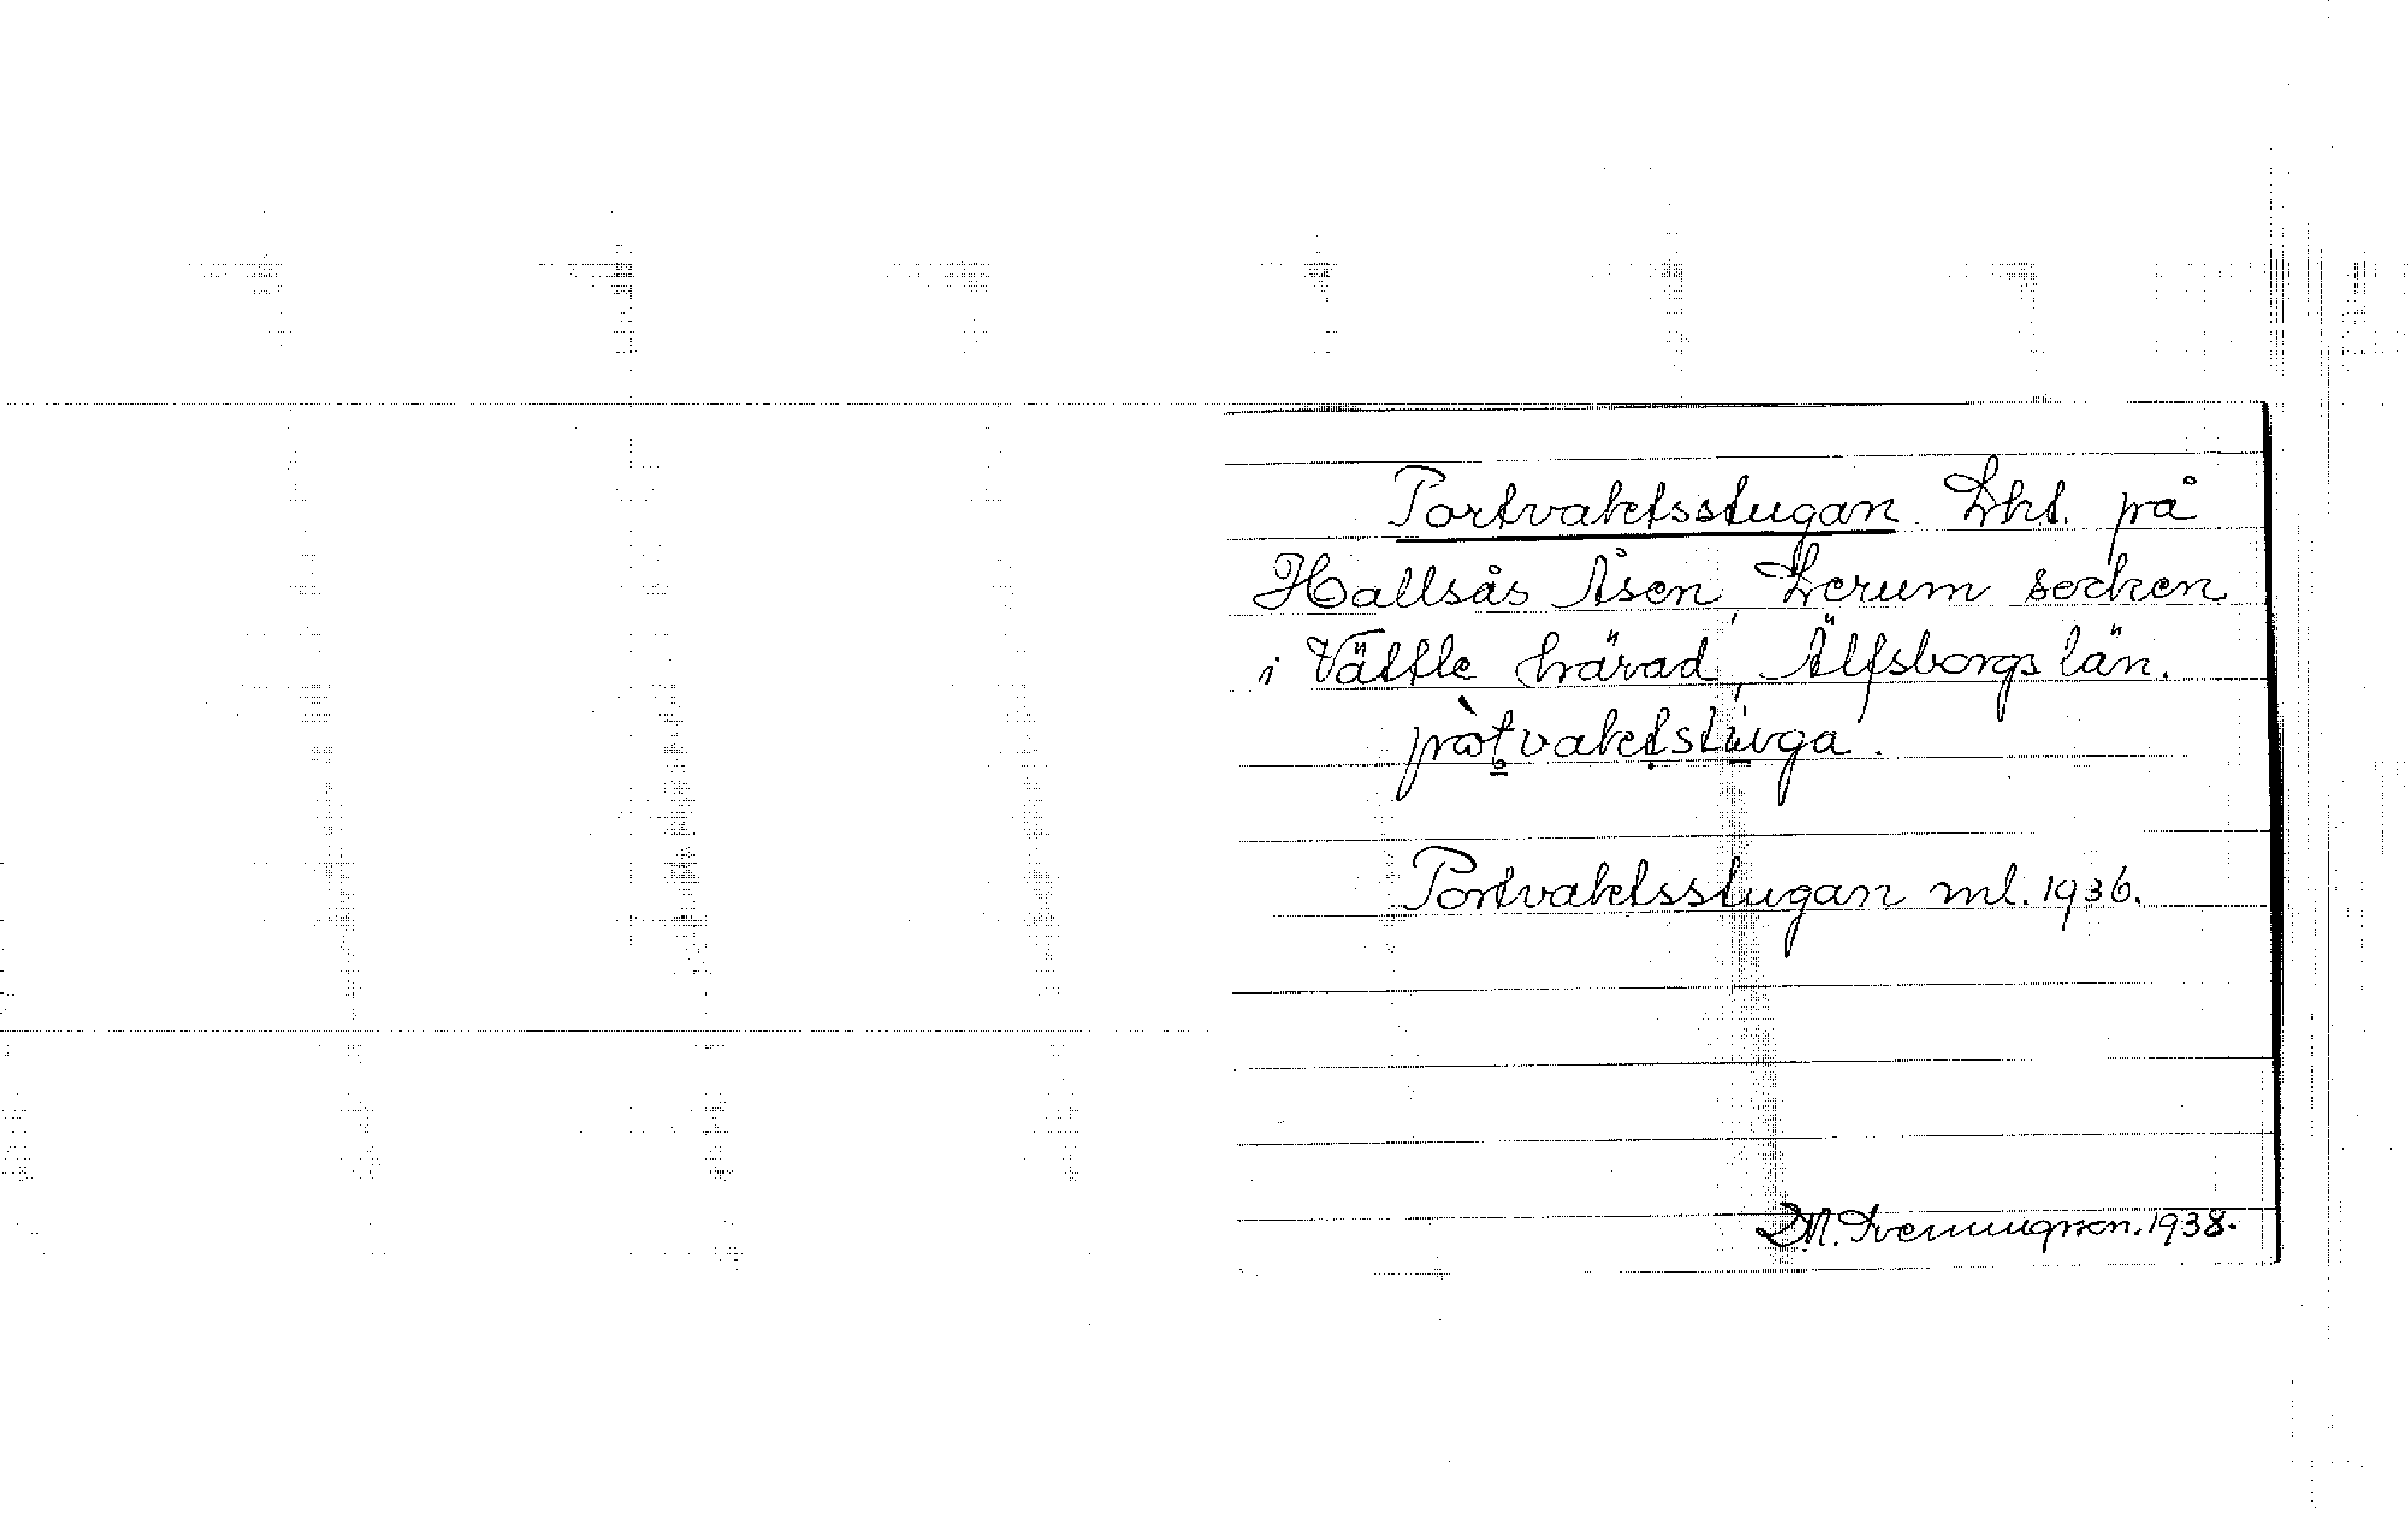 Portvaktsstugan. Lht. på
Hallsås Åsen, Lerum socken
i Vättle härad, Älfsborgs län.
pòtvaktstuga.
Portvaktsstugan ml. 1936.
1938.